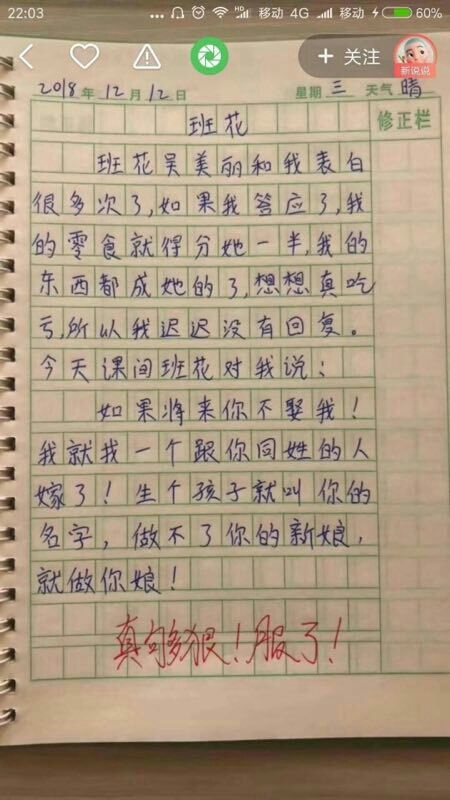 22:03 HD 移动 4G 移动 60%
+ 关注
新说说
2018年12月12日 星期三 天气晴
修正栏
班花
班花吴美丽和我表白
很多次了,如果我答应了,我
的零食就得分她一半,我的
东西都成她的了,想想真吃
亏,所以我迟迟没有回复。
今天课间班花对我说:
如果将来你不娶我!
我就找一个跟你同姓的人
嫁了!生个孩子就叫你的
名字,做不了你的新娘,
就做你娘!
真够狠!服了!